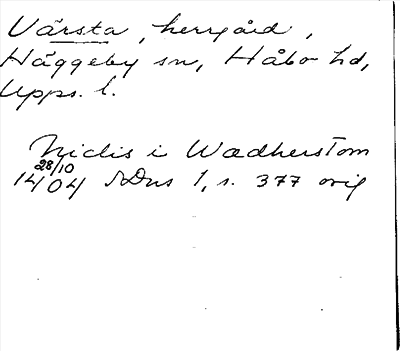 Vårsta, herrgård,
Häggeby sn, Håbo hd,
Upps. l.
i Wædherstom
28/10
1404 SDns 1, s. 377 orig